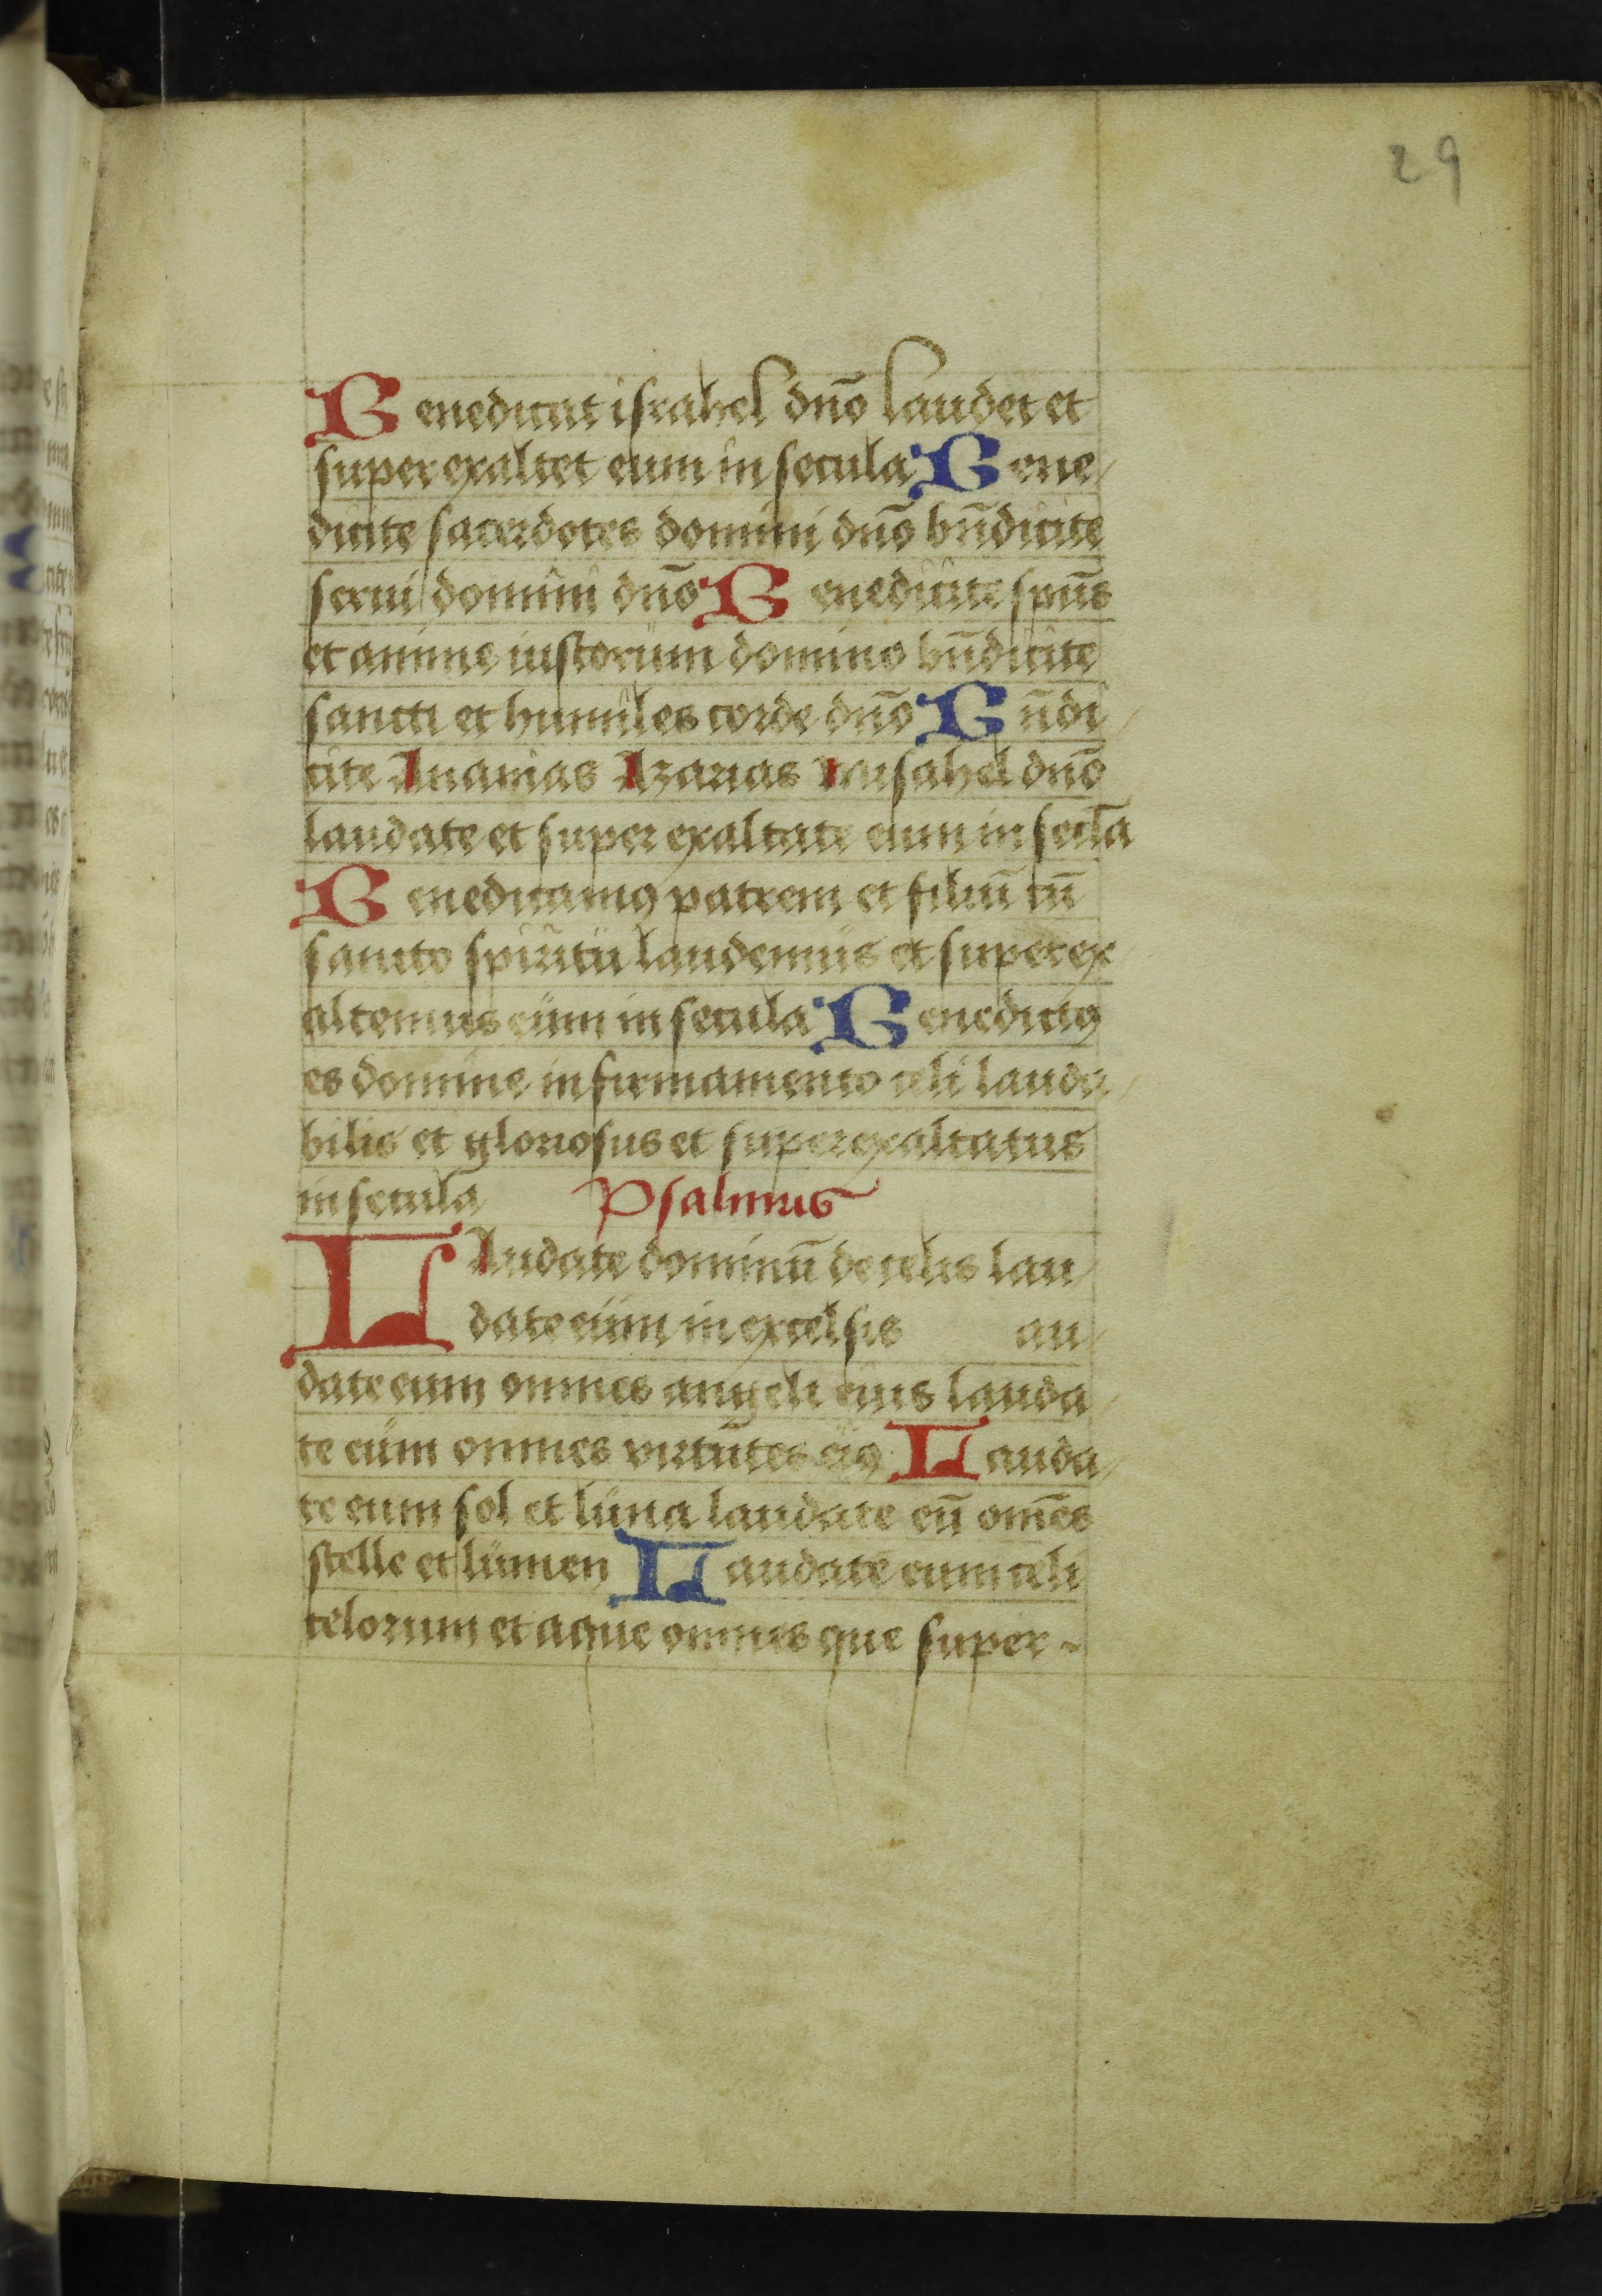 29
Benedicat israhel dn̄o laudet et
superexaltet eum in secula Bene/
dicite sacerdotes domini dn̄o bn̄dicite
serui domini dn̄o Benedicite sp̄us
et anime iustorum domino bn̄dicite
sancti et humiles corde dn̄o Bn̄di/
cite Ananias Azarias misahel dn̄o
laudate et super exaltate eum in secl̄a
Benedicamꝰ patrem et filiū cū
sancto spiritu laudemus et superex
altemus eum in secula Benedictꝰ
es domine in firmamento celi lauda/
bilis et gloriosus et superexaltatus
in secula Psalmus
LAudate dominū de celis lau/
date eum in excelsis au/
date eum omnes angeli eius lauda/
te eum omnes virtutes eiꝰ Lauda/
te eum sol et luna laudate eū om̄es
stelle et lumen Laudate eum celi
celorum et aque omnes que super-